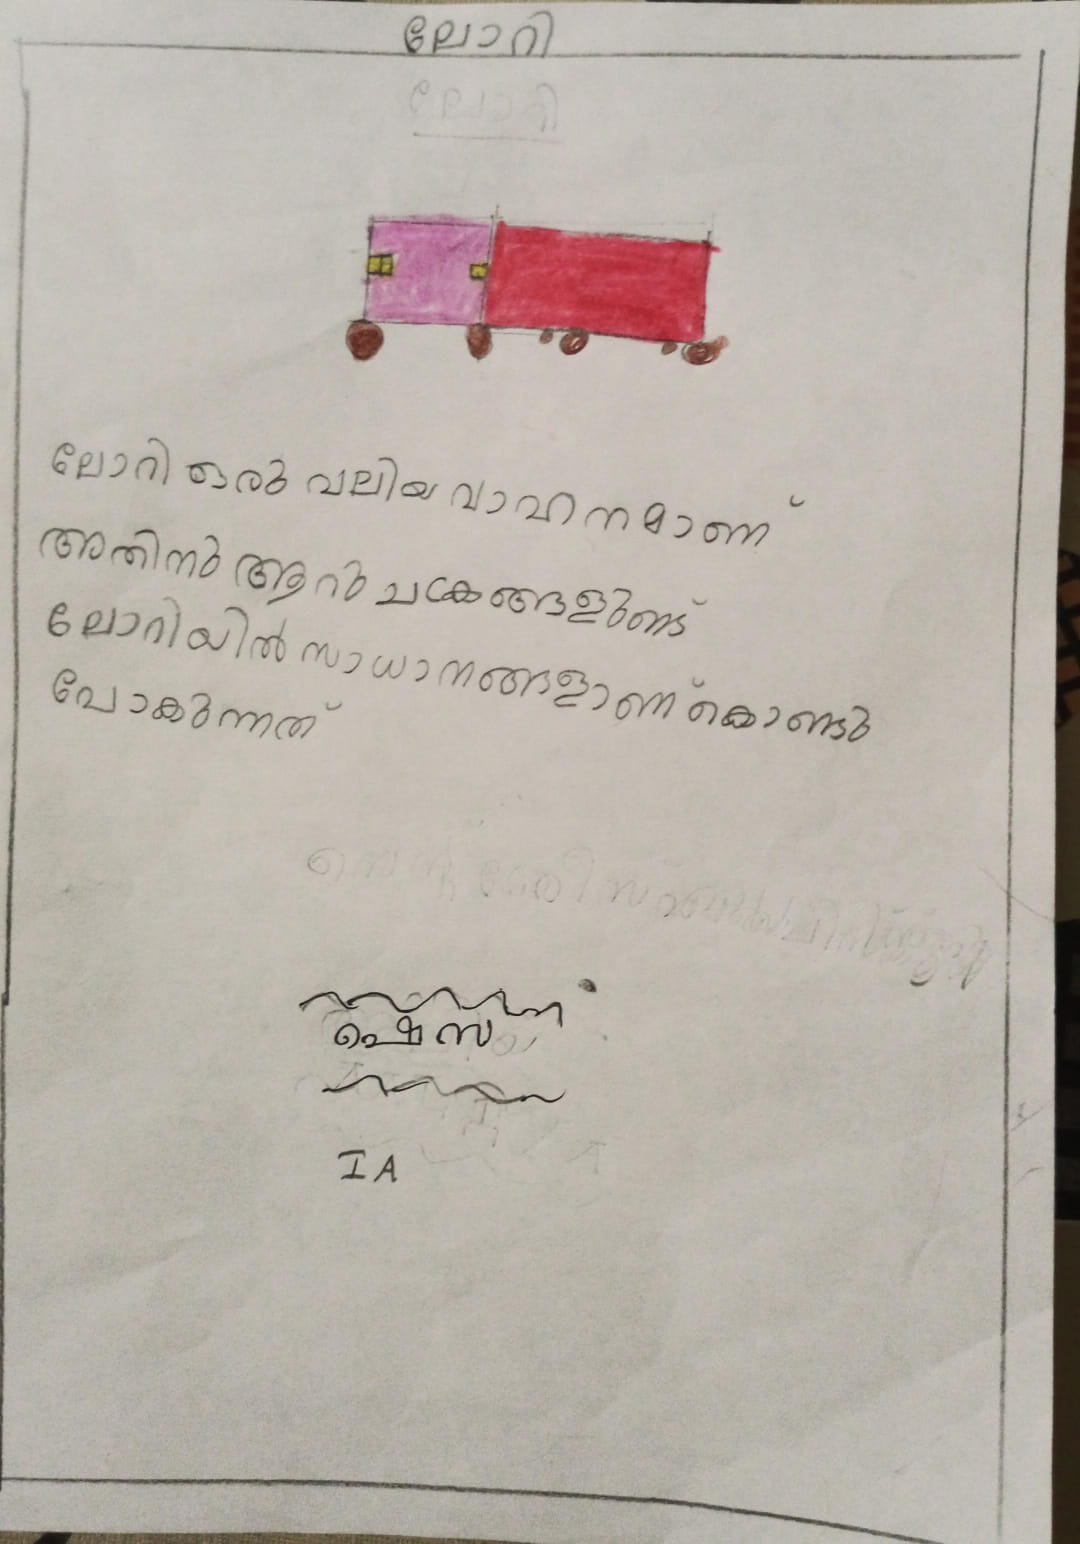 ലോറി
ലോറി ഒരു വലിയ വാഹനമാണ്
അതിനു ആറു ചക്രങ്ങളുണ്ട്
ലോറിയിൽ സാധാനങ്ങളാണ് കൊണ്ടു
പോകുന്നത്
ഷെസ
I A